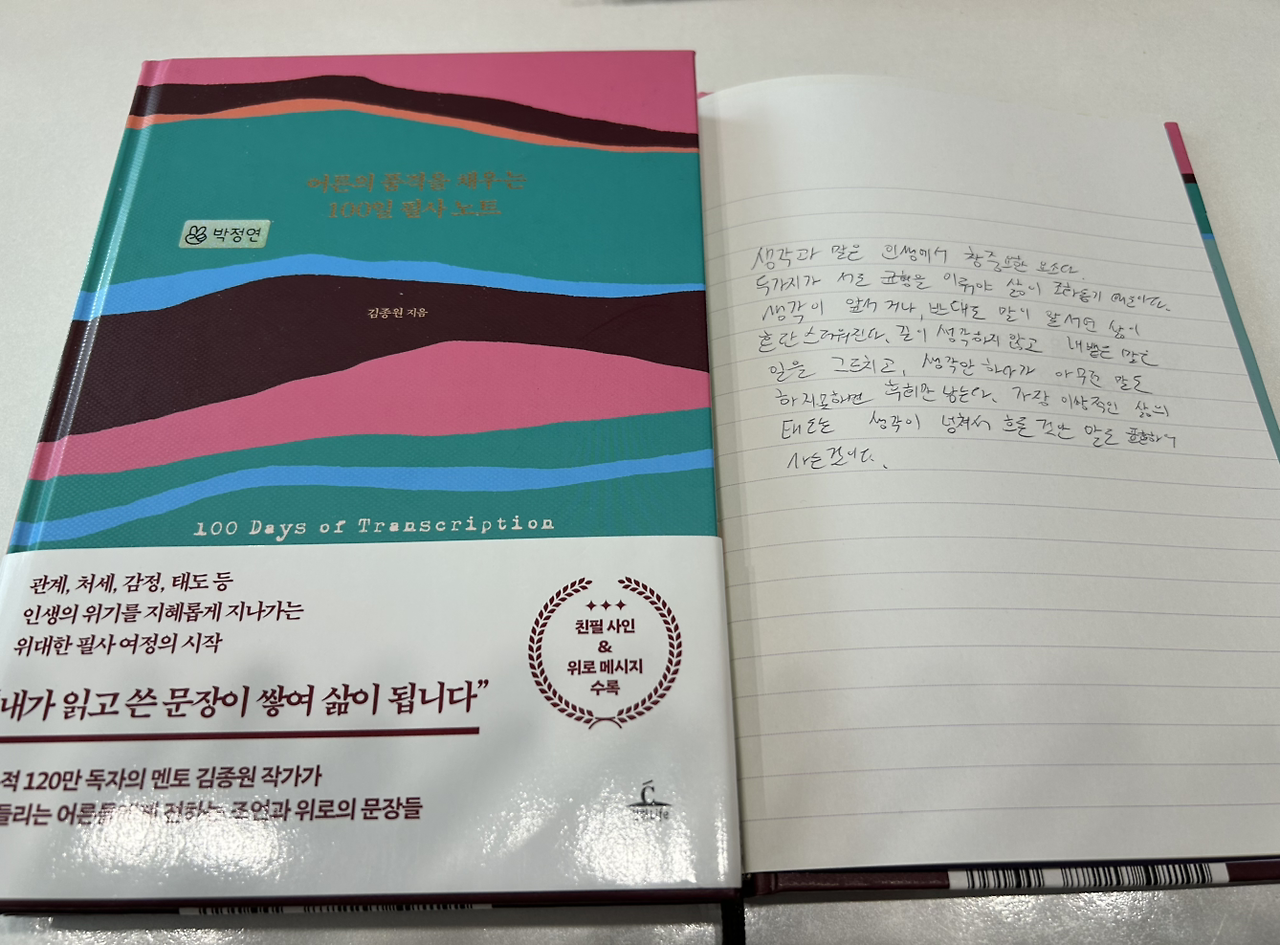 어른의 품격을 채우는
100일 필사 노트
박정연
김종원 지음
100 Days of Transcription
관계, 처세, 감정, 태도 등
인생의 위기를 지혜롭게 지나가는
위대한 필사 여정의 시작
"내가 읽고 쓴 문장이 쌓여 삶이 됩니다"
적 120만 독자의 멘토 김종원 작가가
들리는 어른들에게 전하는 조언과 위로의 문장들
친필 사인
&
위로 메시지
수록
생각과 말은 인생에서 참 중요한 요소다.
두가지가 서로 균형을 이뤄야 삶이 조화롭기 때문이다.
생각이 앞서거나, 반대로 말이 앞서면 삶이
혼란스러워진다. 깊이 생각하지 않고 내뱉은 말은
일을 그르치고, 생각만 하다가 아무런 말도
하지못하면 후회만 남는다. 가장 이상적인 삶의
태도는 생각이 넘쳐서 흐른 것만 말로 표현하며
사는 겁니다.